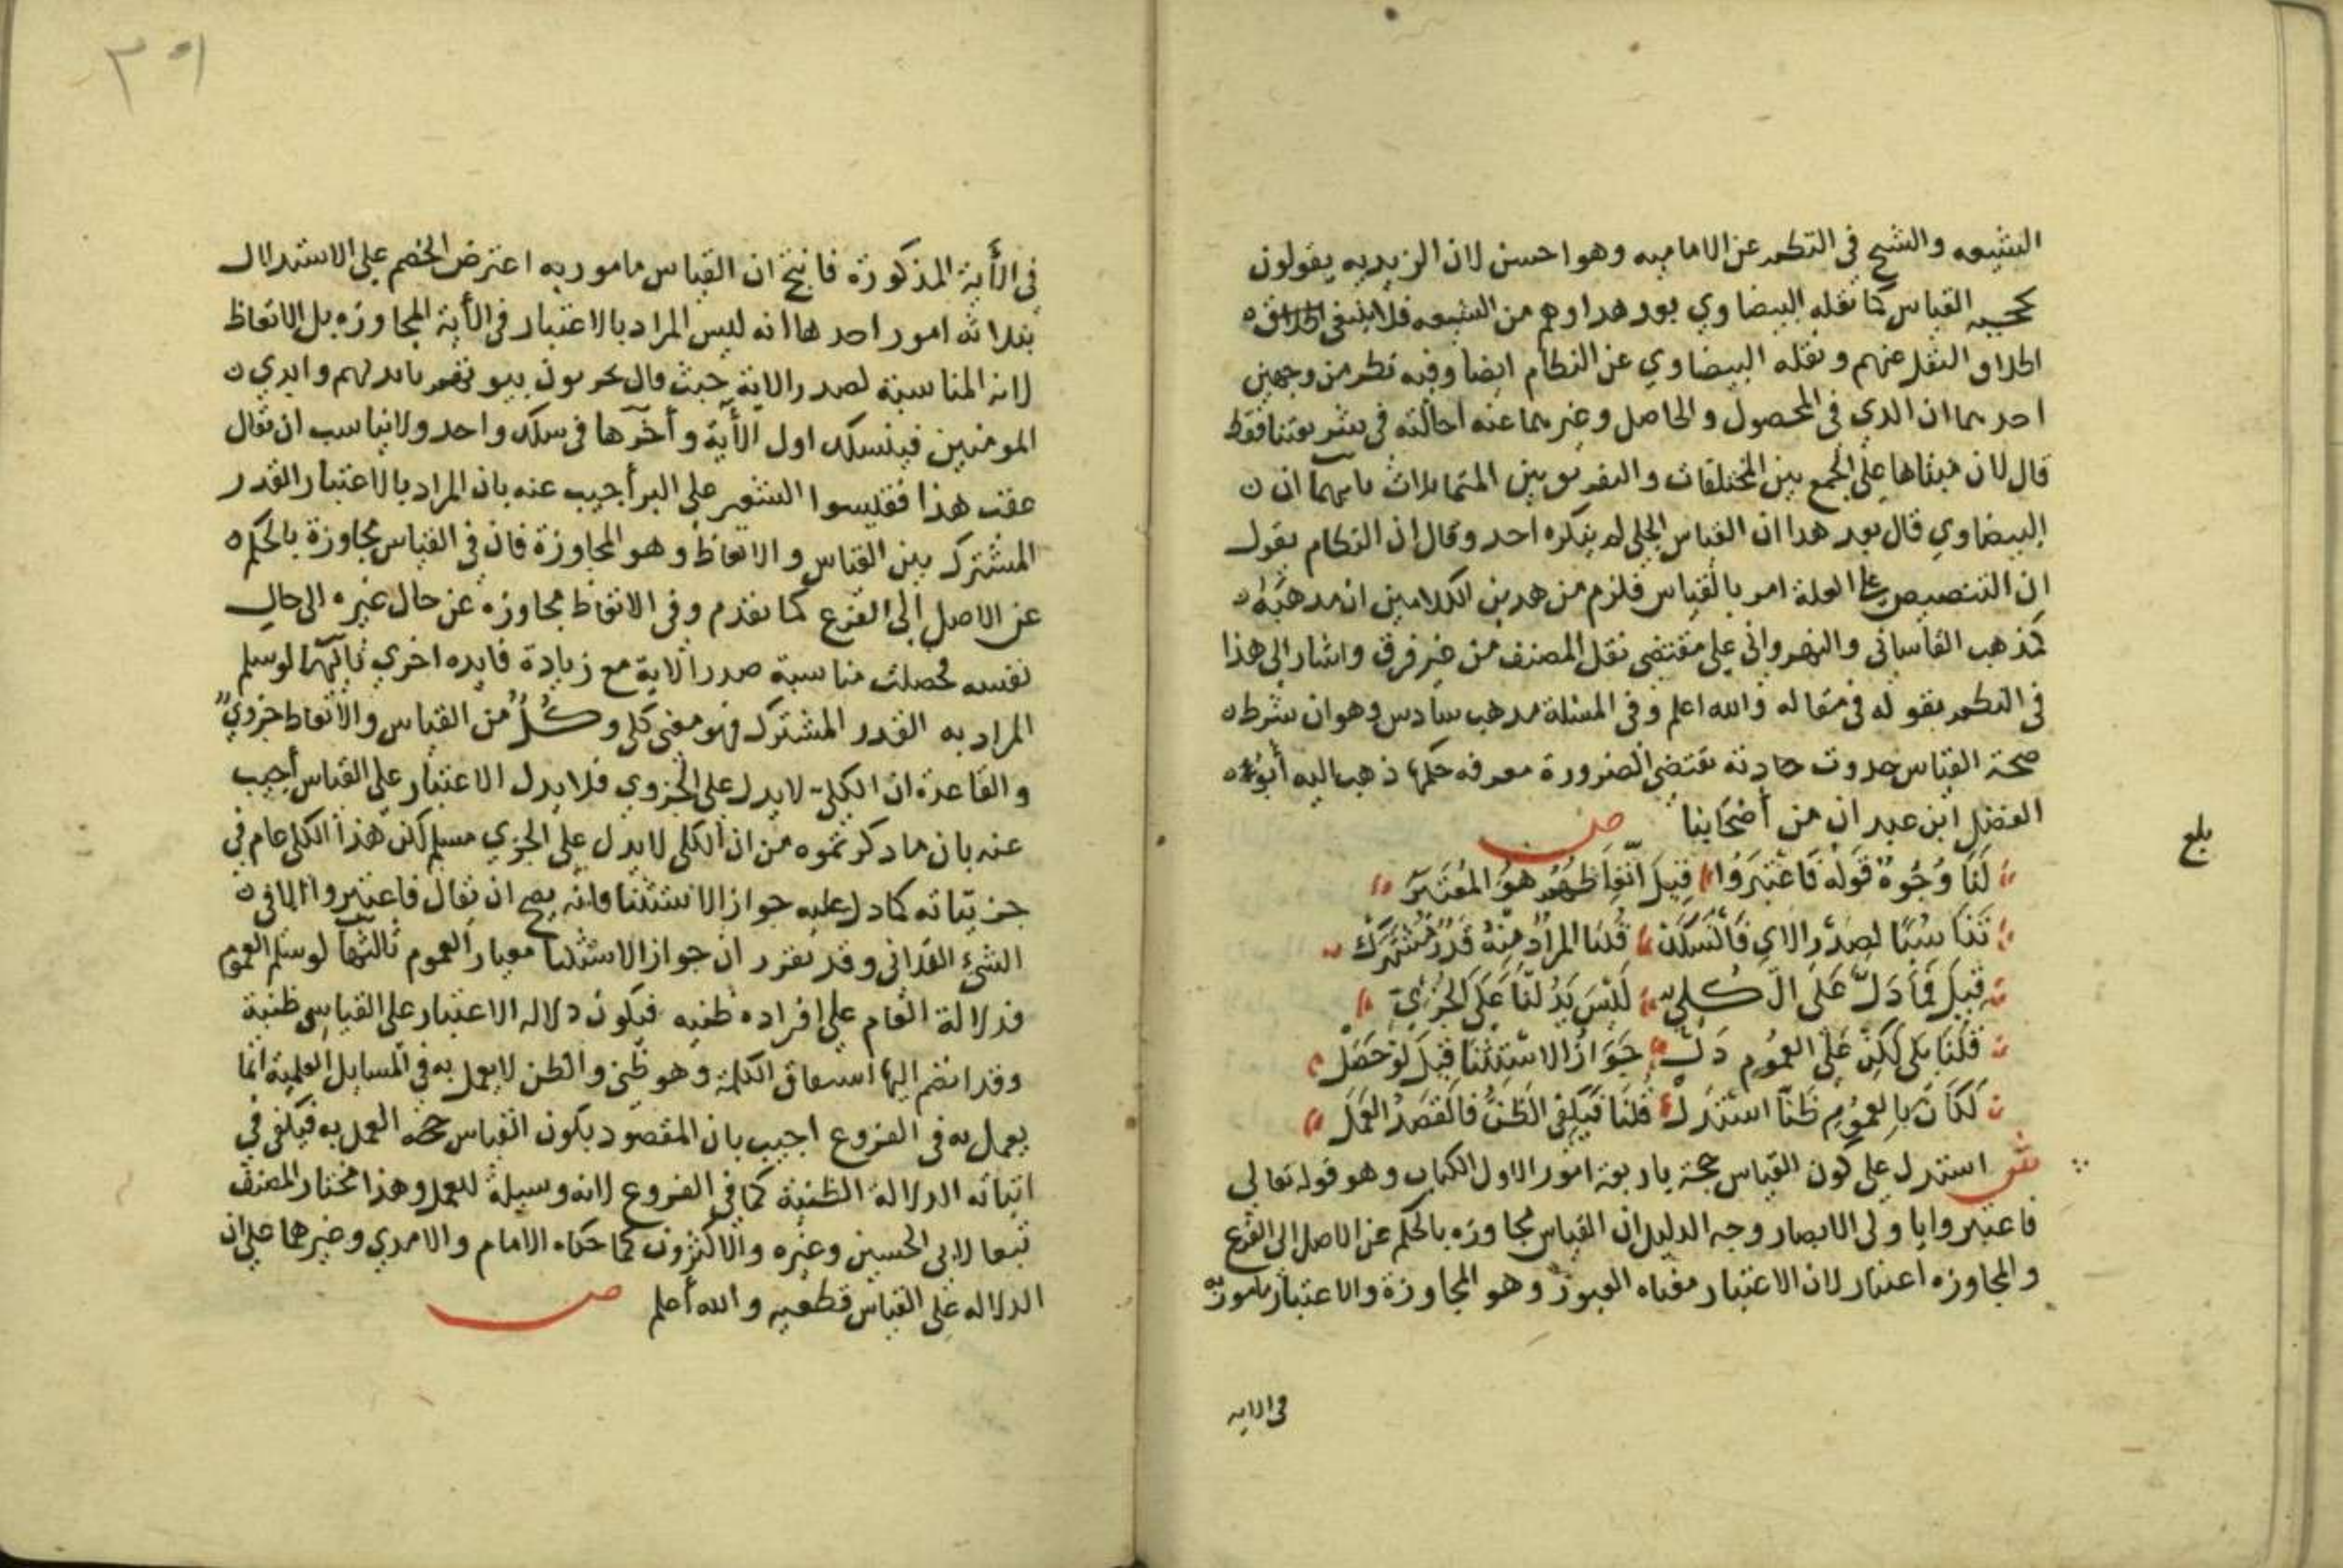 الشيعه والشيخ في النظم عن الاماميه وهو احسن لان الزيديه يقولون
بحجيه القياس كما نقله البيضاوي بعد هذا وهم من الشيعه فلا ينبغي اطلاق
اطلاق النقل عنهم ونقله البيضاوي عن النظام ايضا وفيه نظر من وجهين
احدهما ان الذي في المحصول والحاصل وغيرهما عنه احالته في شريعتنا فقط
قال لان مبناها على الجمع بين المختلفات والتفريق بين المتماثلات ثانيهما ان
البيضاوي قال بعد هذا ان القياس الجلي لم ينكره احد وقال ان النظام يقول
ان التنصيص على العلة امر بالقياس فلزم من هذين الكلامين ان مذهبه
كمذهب القاساني والنهرواني على مقتضى نقل المصنف من غير فرق واشار الى هذا
في النظم بقوله في مقاله والله اعلم وفي المسئلة مذهب سادس وهو ان شرط
صحة القياس حدوث حادثة تقتضي الضرورة معرفه حكمها ذهب اليه أبو
الفضل ابن عبدان من أصحابنا ص
لَنَا وُجُوهٌ قَولُه فَاعْتَبِرُوا قِيلَ اتِّعَاظهُم هُوَ المُعْتَبَرُ
تَنَاسُبًا لِصَدْرِ الاي فَانْسَلَكْ قُلنَا المرَادُ مِنْهُ قَدْرٌ مُشْتَرَكْ
قِيلَ فَمَا دَلَّ عَلَى الْكُلِيّ لَيْسَ يَدُلُّنَا عَلَى الجُزْئِيّ
قُلنَا بَلَى لَكِنْ عَلَى العُمُومِ دَلّ جَوَازُ الاسْتِثْنَا قِيلَ لَوْ حَصَلْ
لَكَانَ بِالعمُومِ ظَنًّا اسْتَدَلّ قُلنَا فَيَكفِي الظَنُّ فَالقَصْدُ العَمَلْ
ش استدل على كون القياس حجة باربعة امور الاول الكتاب وهو قوله تعالي
فاعتبروا يا اولى الابصار وجه الدليل ان القياس مجاوزه بالحكم عن الاصل الى الفرع
والمجاوزه اعتبار لان الاعتبار معناه العبور وهو المجاوزة والاعتبار مامور به
في الايه
بلغ
في الأية المذكورة فانتج ان القياس مامور به اعترض الخصم على الاستدلال
بثلاثه امور احدها انه ليس المراد بالاعتبار في الأية المجاوزه بل الاتعاظ
لانه المناسبة لصدر الاية حيث قال يخربون بيوتهم بايديهم وايدي
المومنين فينسلك اول الأية وأخرها في سلك واحد ولا يناسب ان يقال
عقب هذا فقيسوا الشعير على البر أجيب عنه بان المراد بالاعتبار القدر
المشترك بين القياس والاتعاظ وهو المجاوزة فان في القياس مجاوزة بالحكم
عن الاصل إلى الفرع كما تقدم وفي الاتعاظ مجاوزه عن حال غيره الى حال
نفسه فحصلت مناسبة صدر الاية مع زيادة فايده اخرى ثانيها لو سلم
المراد به القدر المشترك فهو معنى كلي وكُلٌ من القياس والاتعاظ جزويٌ
والقاعدة ان الكلي لا يدل على الجزوي فلا يدل الاعتبار على القياس أجيب
عنه بان ما ذكرتموه من ان الكلي لا يدل على الجزي مسلم لكن هذا الكلي عام في
جزئياته كما دل عليه جواز الاستثنا فانه يصح ان يقال فاعتبروا الا في
الشئ الفلاني وقد تقرر ان جواز الاستثنا معيار العموم ثالثها لو سلم العموم
فدلالة العام على افراده ظنيه فيكون دلاله الاعتبار على القياس ظنية
وقد انضم اليها اشتقاق الكلمة وهو ظني والظن لا يعمل به في المسايل العلمية انما
يعمل به في الفروع اجيب بان المقصود بكون القياس حجة العمل به فيكفي في
اثباته الدلالة الظنية كما في الفروع لانه وسيلة للعمل وهذا مختار المصنف
تبعا لابي الحسين وغيره والاكثرون كما حكاه الامام والامدي وغيرهما على ان
الدلاله على القياس قطعيه والله أعلم ص